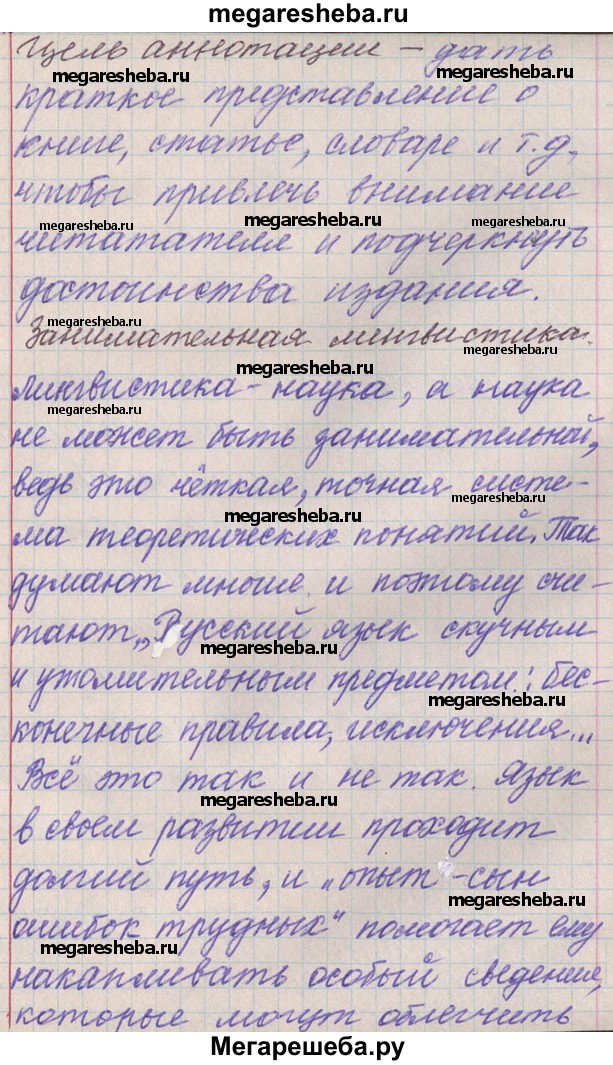 megaresheba.ru
Цель аннотации – дать
megaresheba.ru megaresheba.ru
краткое представление о
книге, статье, словаре и т.д,
чтобы привлечь внимание
megaresheba.ru megaresheba.ru megaresheba.ru
читатателя и подчеркнуть
достоинства издания.
megaresheba.ru
Занимательная лингвистика.
megaresheba.ru megaresheba.ru
Лингвистика – наука, а наука
не может быть занимательной,
ведь это чёткая, точная систе-
megaresheba.ru
megaresheba.ru
ма теоретических понятий. Так
думают многие и поэтому счи-
тают „Русский язык скучным
и утомительным предметом: бес-
megaresheba.ru
конечные правила, исключения...
Всё это так и не так. Язык
megaresheba.ru
в своем развитии проходит
долгий путь, и „опыт – сын
ошибок трудных“ помогает ему
megaresheba.ru
накапливать особый сведения,
которые могут облегчить
megaresheba.ru
Мегарешеба.ру